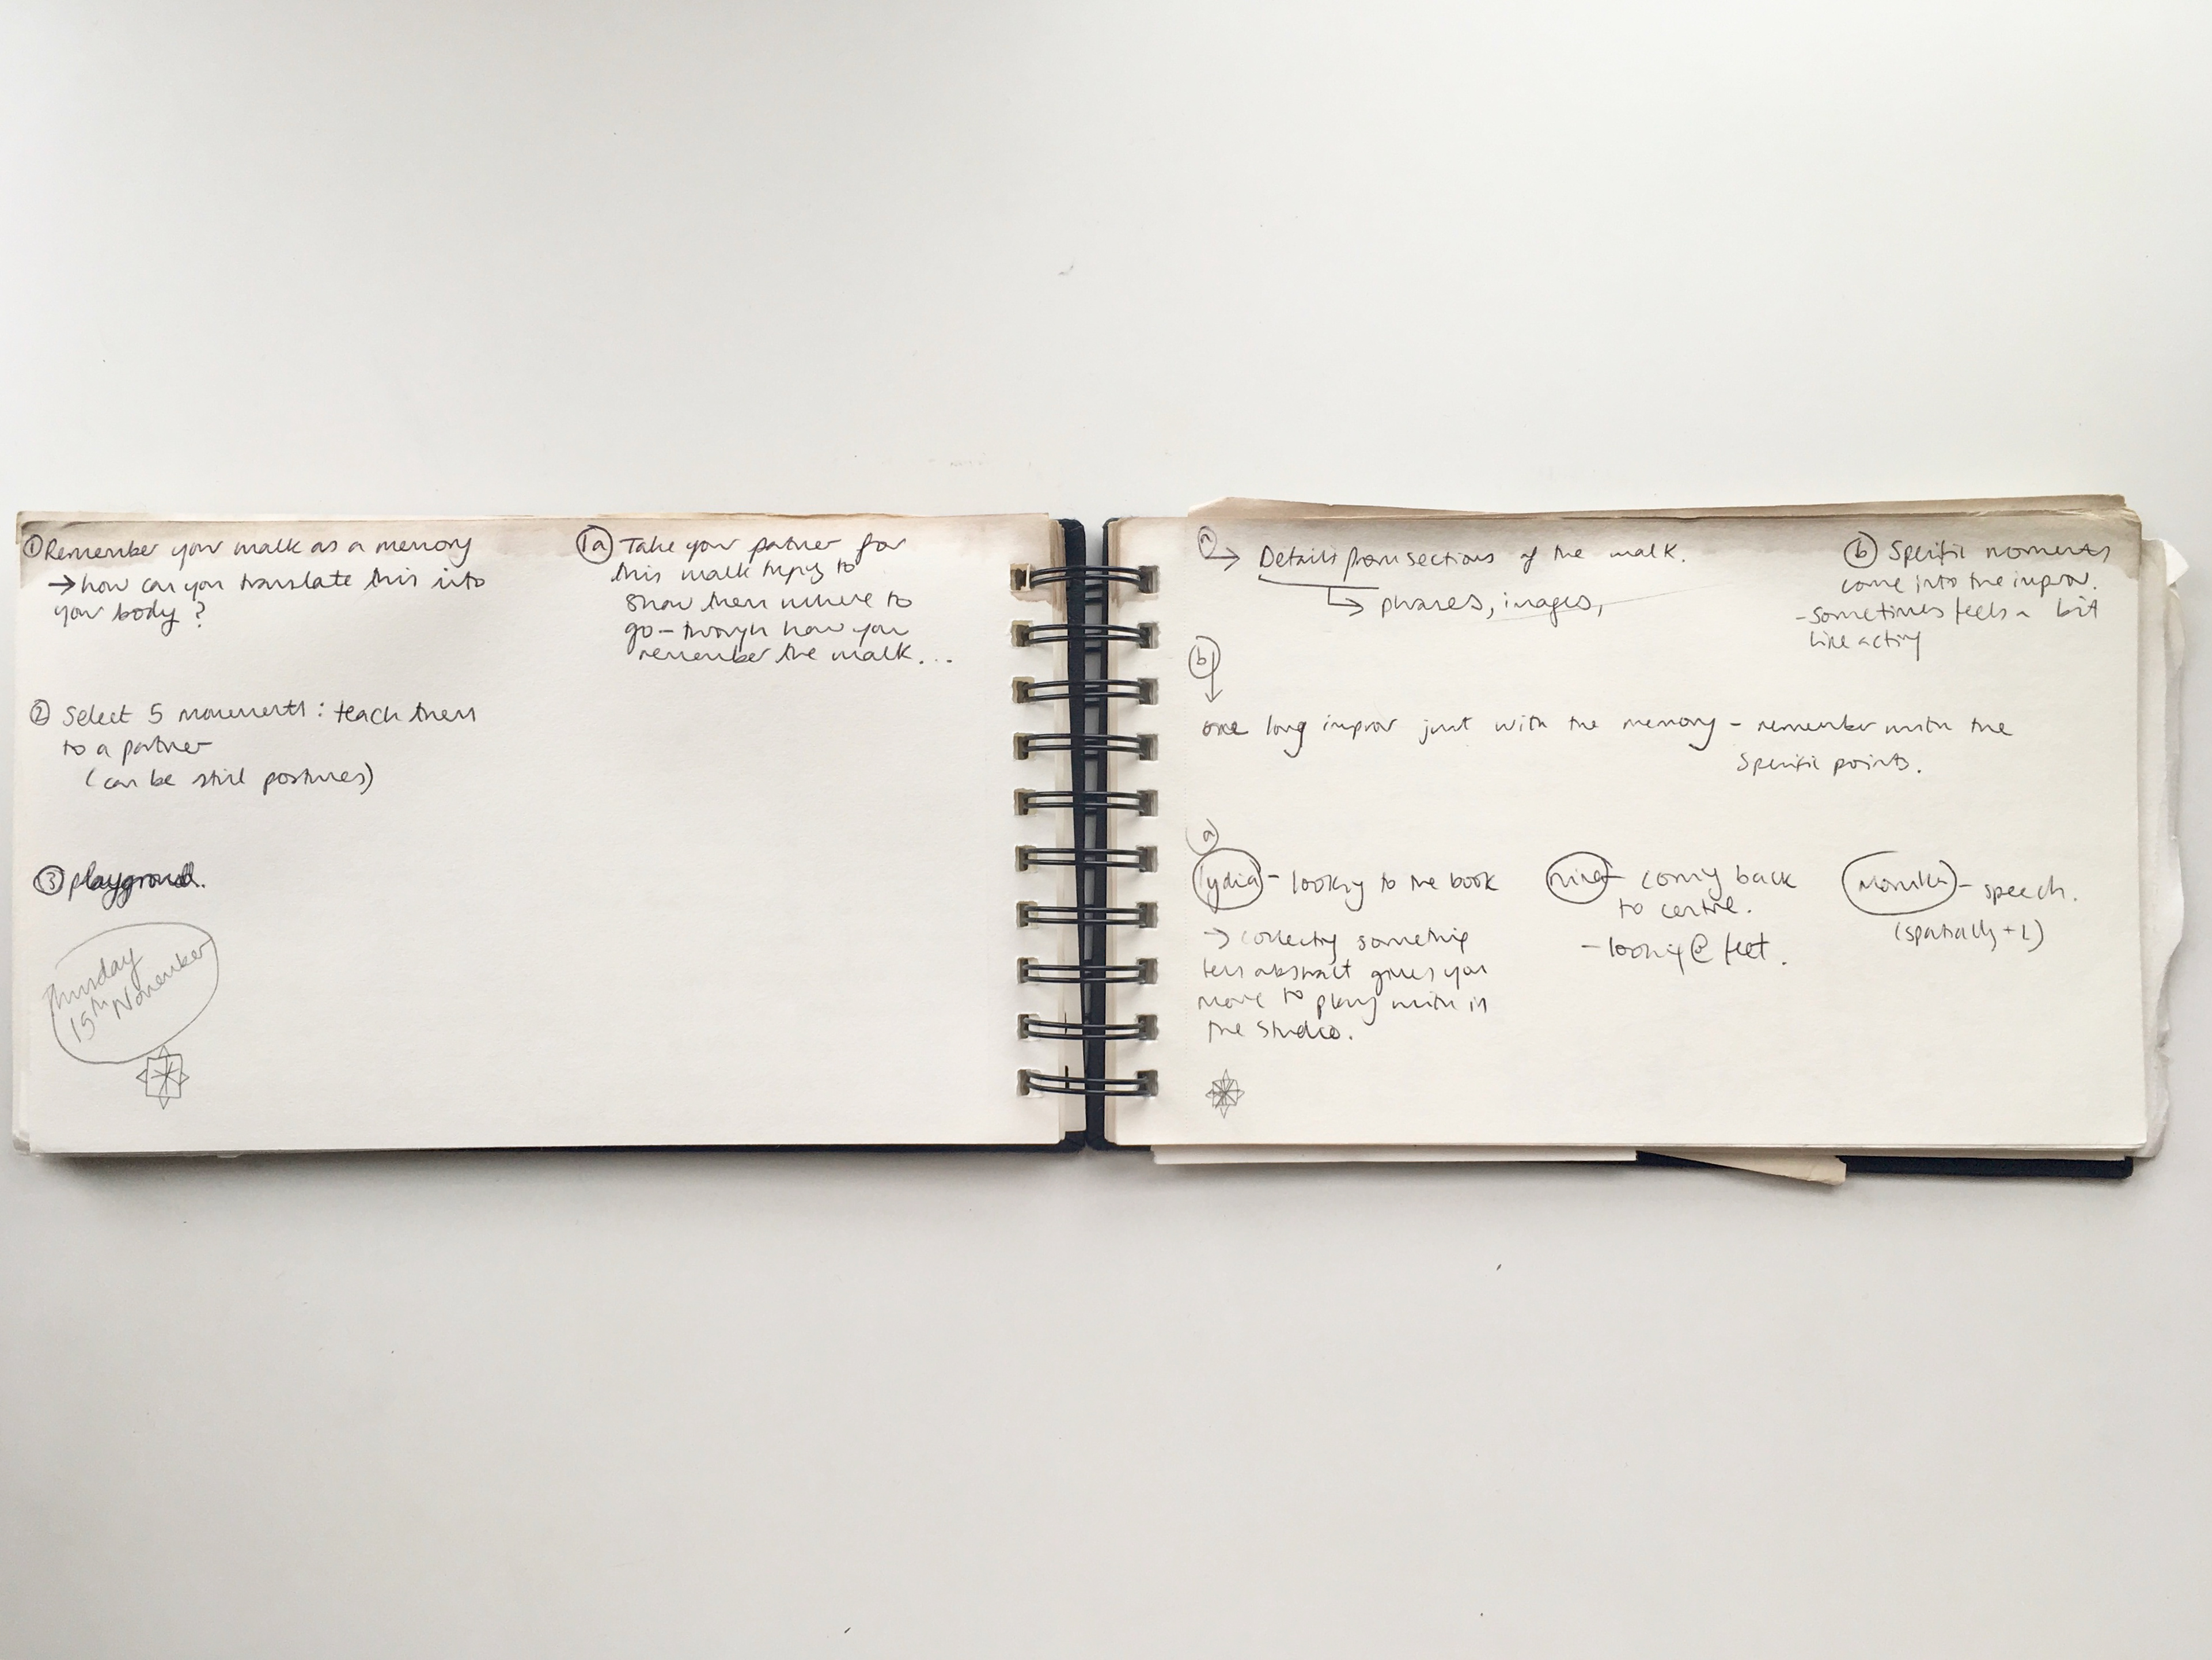 ① Remember your walk as a memory
→ how can you translate this into
your body?
1a Take your partner for
this walk trying to
show them where to
go - through how you
remember the walk...
② Select 5 movements: teach them
to a partner
(can be still postures)
③ playground.
Thursday
15th November
a → Details from sections of the walk.
↳ phrases, images,
b Specific moments
come into the improv.
- sometimes feels a bit
like acting
b ↓
one long improv just with the memory - remember with the
specific points.
a
Lydia - looking to the book
→ collecting something
less abstract gives you
more to play with in
the studio.
Nina - coming back
to centre.
- looking @ feet.
Monika - speech.
(spatially + L)